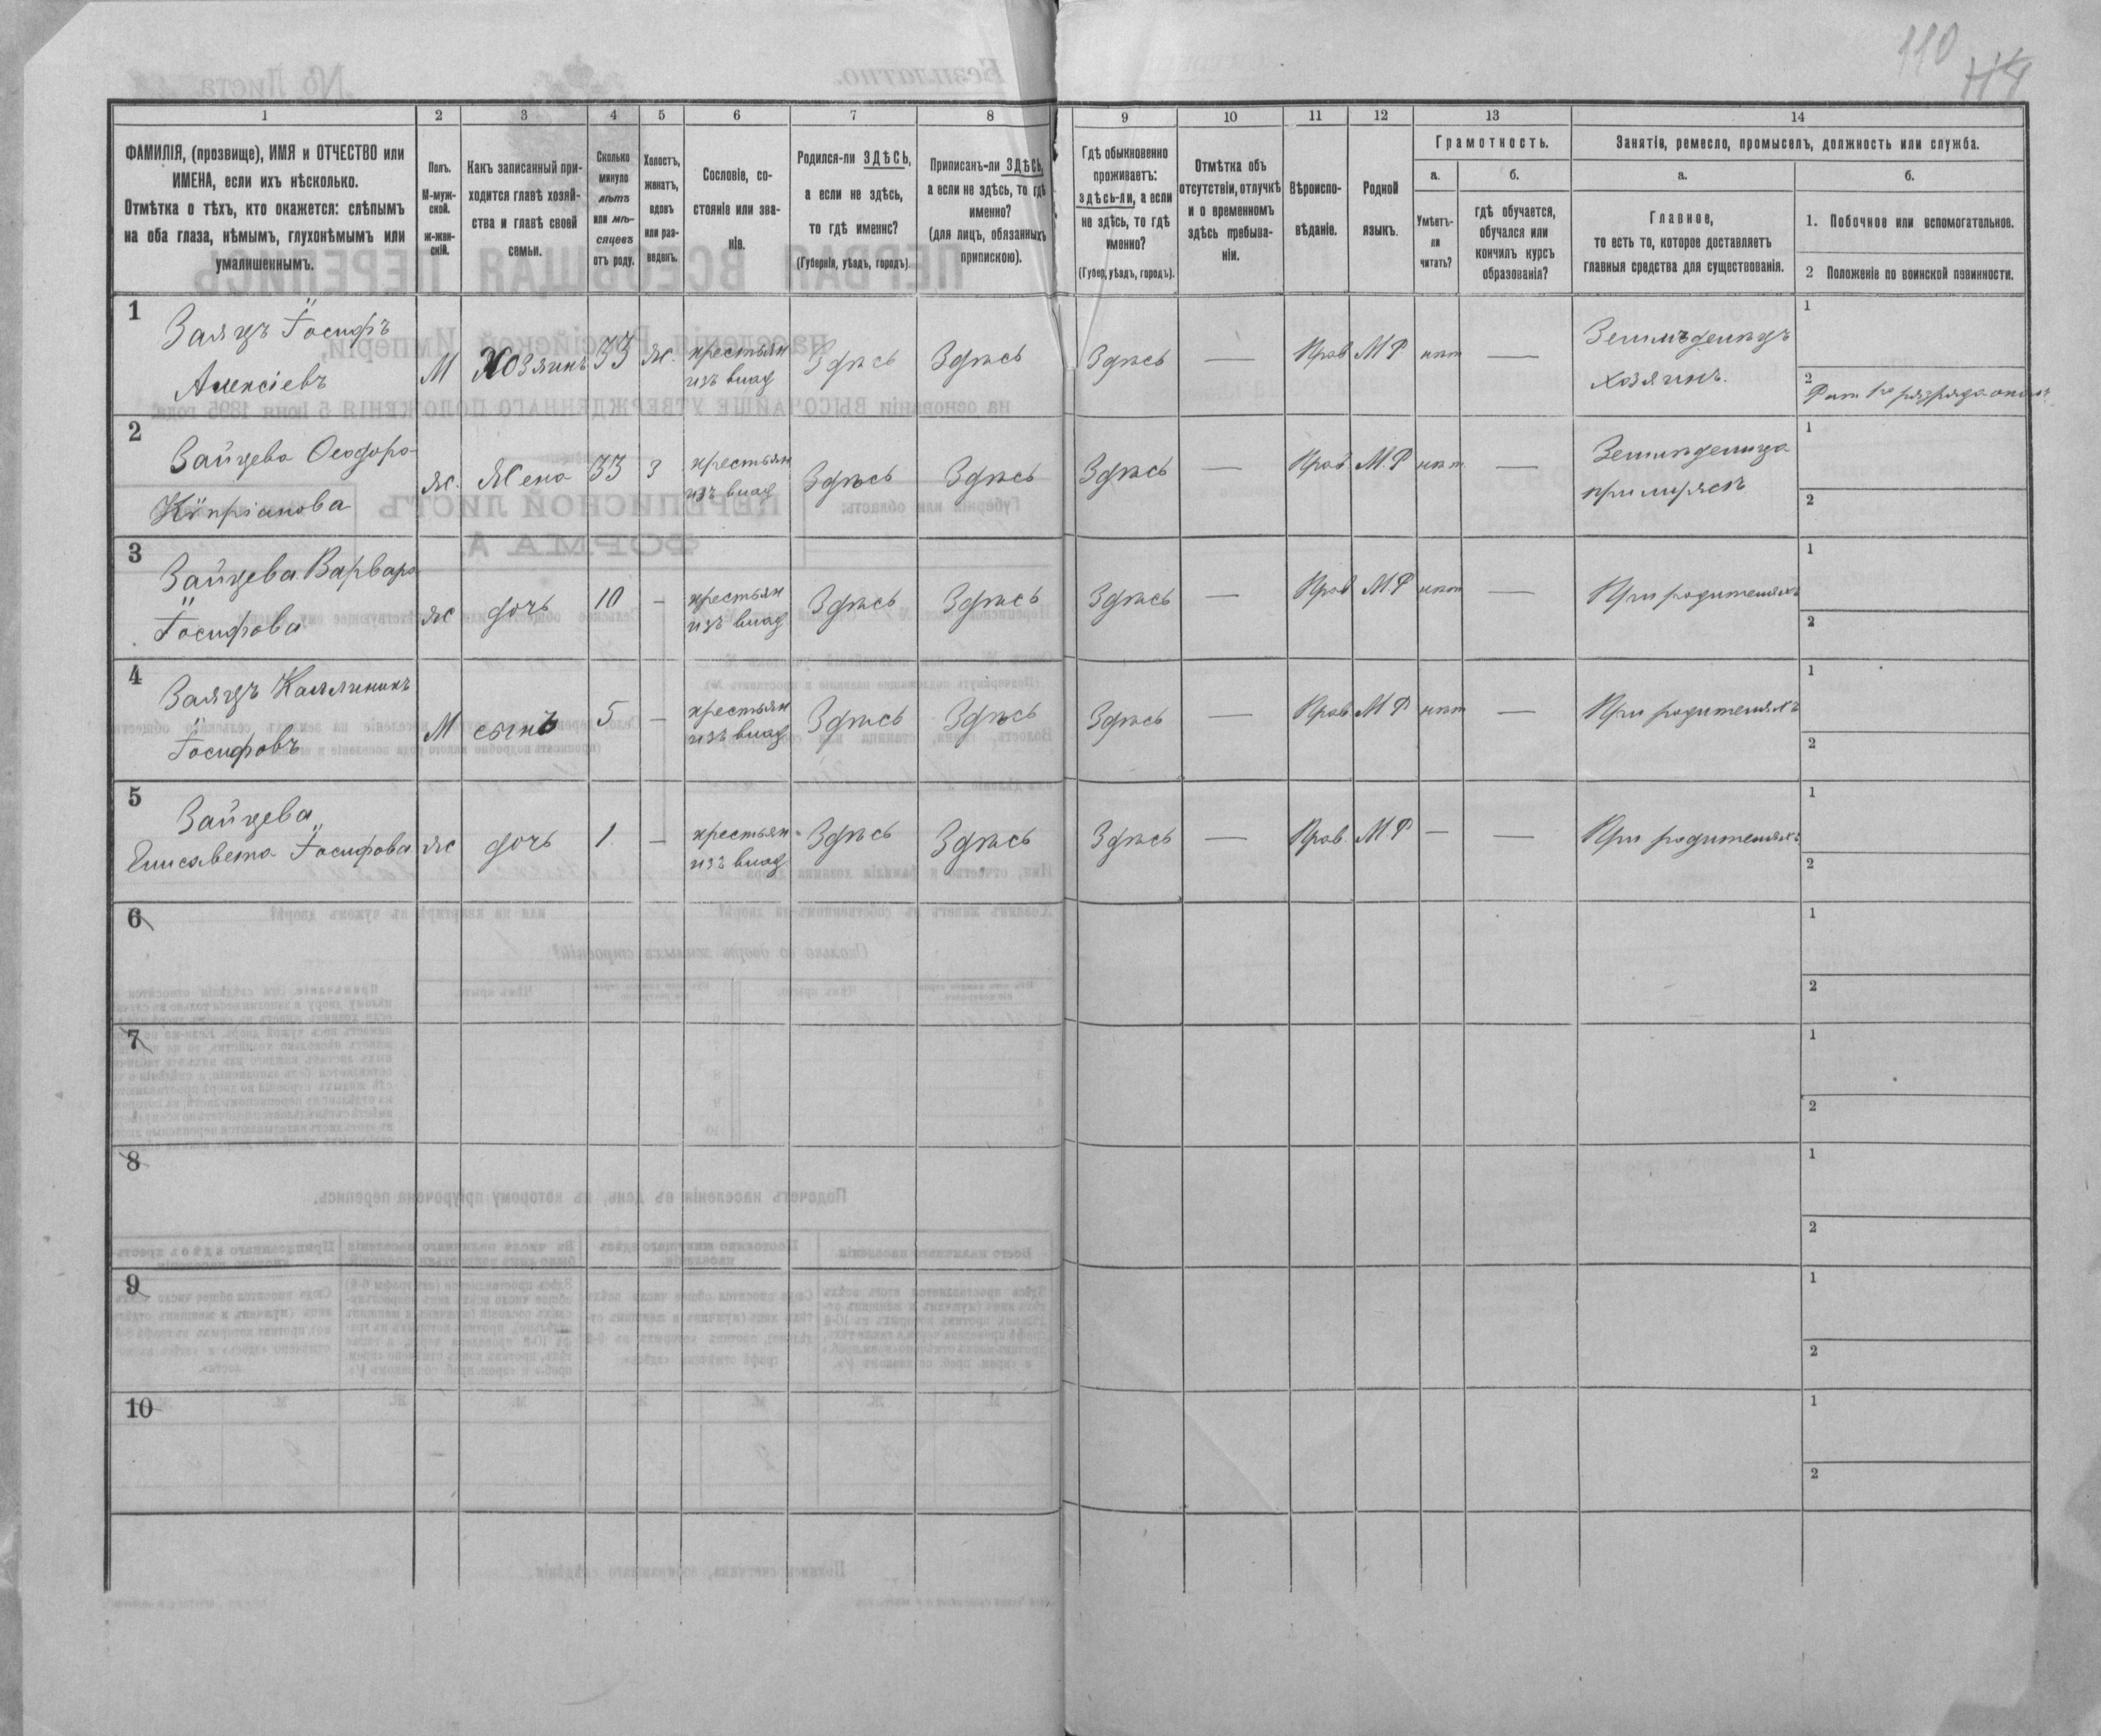 110
114
1 2 3 4 5 6 7 8 9 10 11 12 13 14
ФАМИЛІЯ, (прозвище), ИМЯ и ОТЧЕСТВО или
ИМЕНА, если ихъ нѣсколько.
Отмѣтка о тѣхъ, кто окажется: слѣпымъ
на оба глаза, нѣмымъ, глухонѣмымъ или
умалишеннымъ.
Полъ.
М-муж-
ской.
ж-жен-
скій.
Какъ записанный при-
ходится главѣ хозяй-
ства и главѣ своей
семьи.
Сколько
минуло
лѣтъ
или мѣ-
сяцевъ
отъ роду.
Холостъ,
женатъ,
вдовъ
или раз-
веденъ.
Сословіе, со-
стояніе или зва-
ніе.
Родился-ли ЗДѢСЬ,
а если не здѣсь,
то гдѣ именно?
(Губернія, уѣздъ, городъ)
Приписанъ-ли ЗДѢСЬ,
а если не здѣсь, то гдѣ
именно?
(для лицъ, обязанныхъ
припискою).
Гдѣ обыкновенно
проживаетъ:
здѣсь-ли, а если
не здѣсь, то гдѣ
именно?
(Губер, уѣздъ, городъ).
Отмѣтка объ
отсутствіи, отлучкѣ
и о временномъ
здѣсь пребыва-
ніи.
Вѣроиспо-
вѣданіе.
Родной
языкъ.
Грамотность.
а.
Умѣетъ-
ли
читать?
б.
гдѣ обучается,
обучался или
кончилъ курсъ
образованія?
Занятіе, ремесло, промыселъ, должность или служба.
а.
Главное,
то есть то, которое доставляетъ
главныя средства для существованія.
б.
1. Побочное или вспомогательное.
2 Положеніе по воинской повинности.
1
Заяцъ Іосифъ
Алексіевъ
М Хозяинъ 33 ж. крестьян
изъ влад Здѣсь Здѣсь Здѣсь — Прав М Р нѣт —
Земледѣлецъ
хозяинъ.
1
2
Рат 1го разряда опол
2
Зайцева Ѳеодора
Кипріанова
ж. Жена 33 З крестьян
изъ влад Здѣсь Здѣсь Здѣсь — Прав. М. Р нѣт —
Земледѣлица
при мужѣ
1
2
3
Зайцева Варвара
Іосифова
ж дочь 10 — крестьян
изъ влад Здѣсь Здѣсь Здѣсь — Прав М Р нѣт —
При родителяхъ
1
2
4
Заяцъ Каллиникъ
Іосифовъ
М сынъ 5 — крестьян
изъ влад Здѣсь Здѣсь Здѣсь — Прав М Р нѣт —
При родителяхъ
1
2
5
Зайцева
Елисавета Іосифова
ж дочь 1 — крестьян
изъ влад Здѣсь Здѣсь Здѣсь — Прав. М Р — —
При родителяхъ
1
2
6
1
2
7
1
2
8
1
2
9
1
2
10
1
2